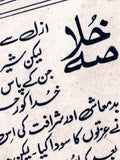 خلاصے
ازل سے
لیکن شیر
جن کے پاس
خدا کو ر
بدمعاشی اور شرافت کی اس
نے عزتوں کا سودا کیا۔ لیکن